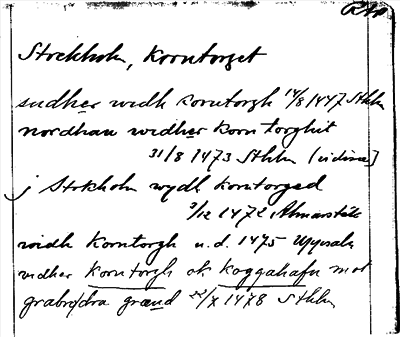 RAp
Stockholm, Korntorget
sudher widh korntorgh 14/8 1447 Sthlm
nordhan widher Korntorghit
31/8 1473 Sthlm (vidim]
j Stokholm wydh korntorged
3/12 1472 Almarstäk
widh Korntorgh u.d. 1475 Uppsala
widher Korntorgh ok Koggahafn mot
grabrødra grænd 22/7 1478 Sthlm